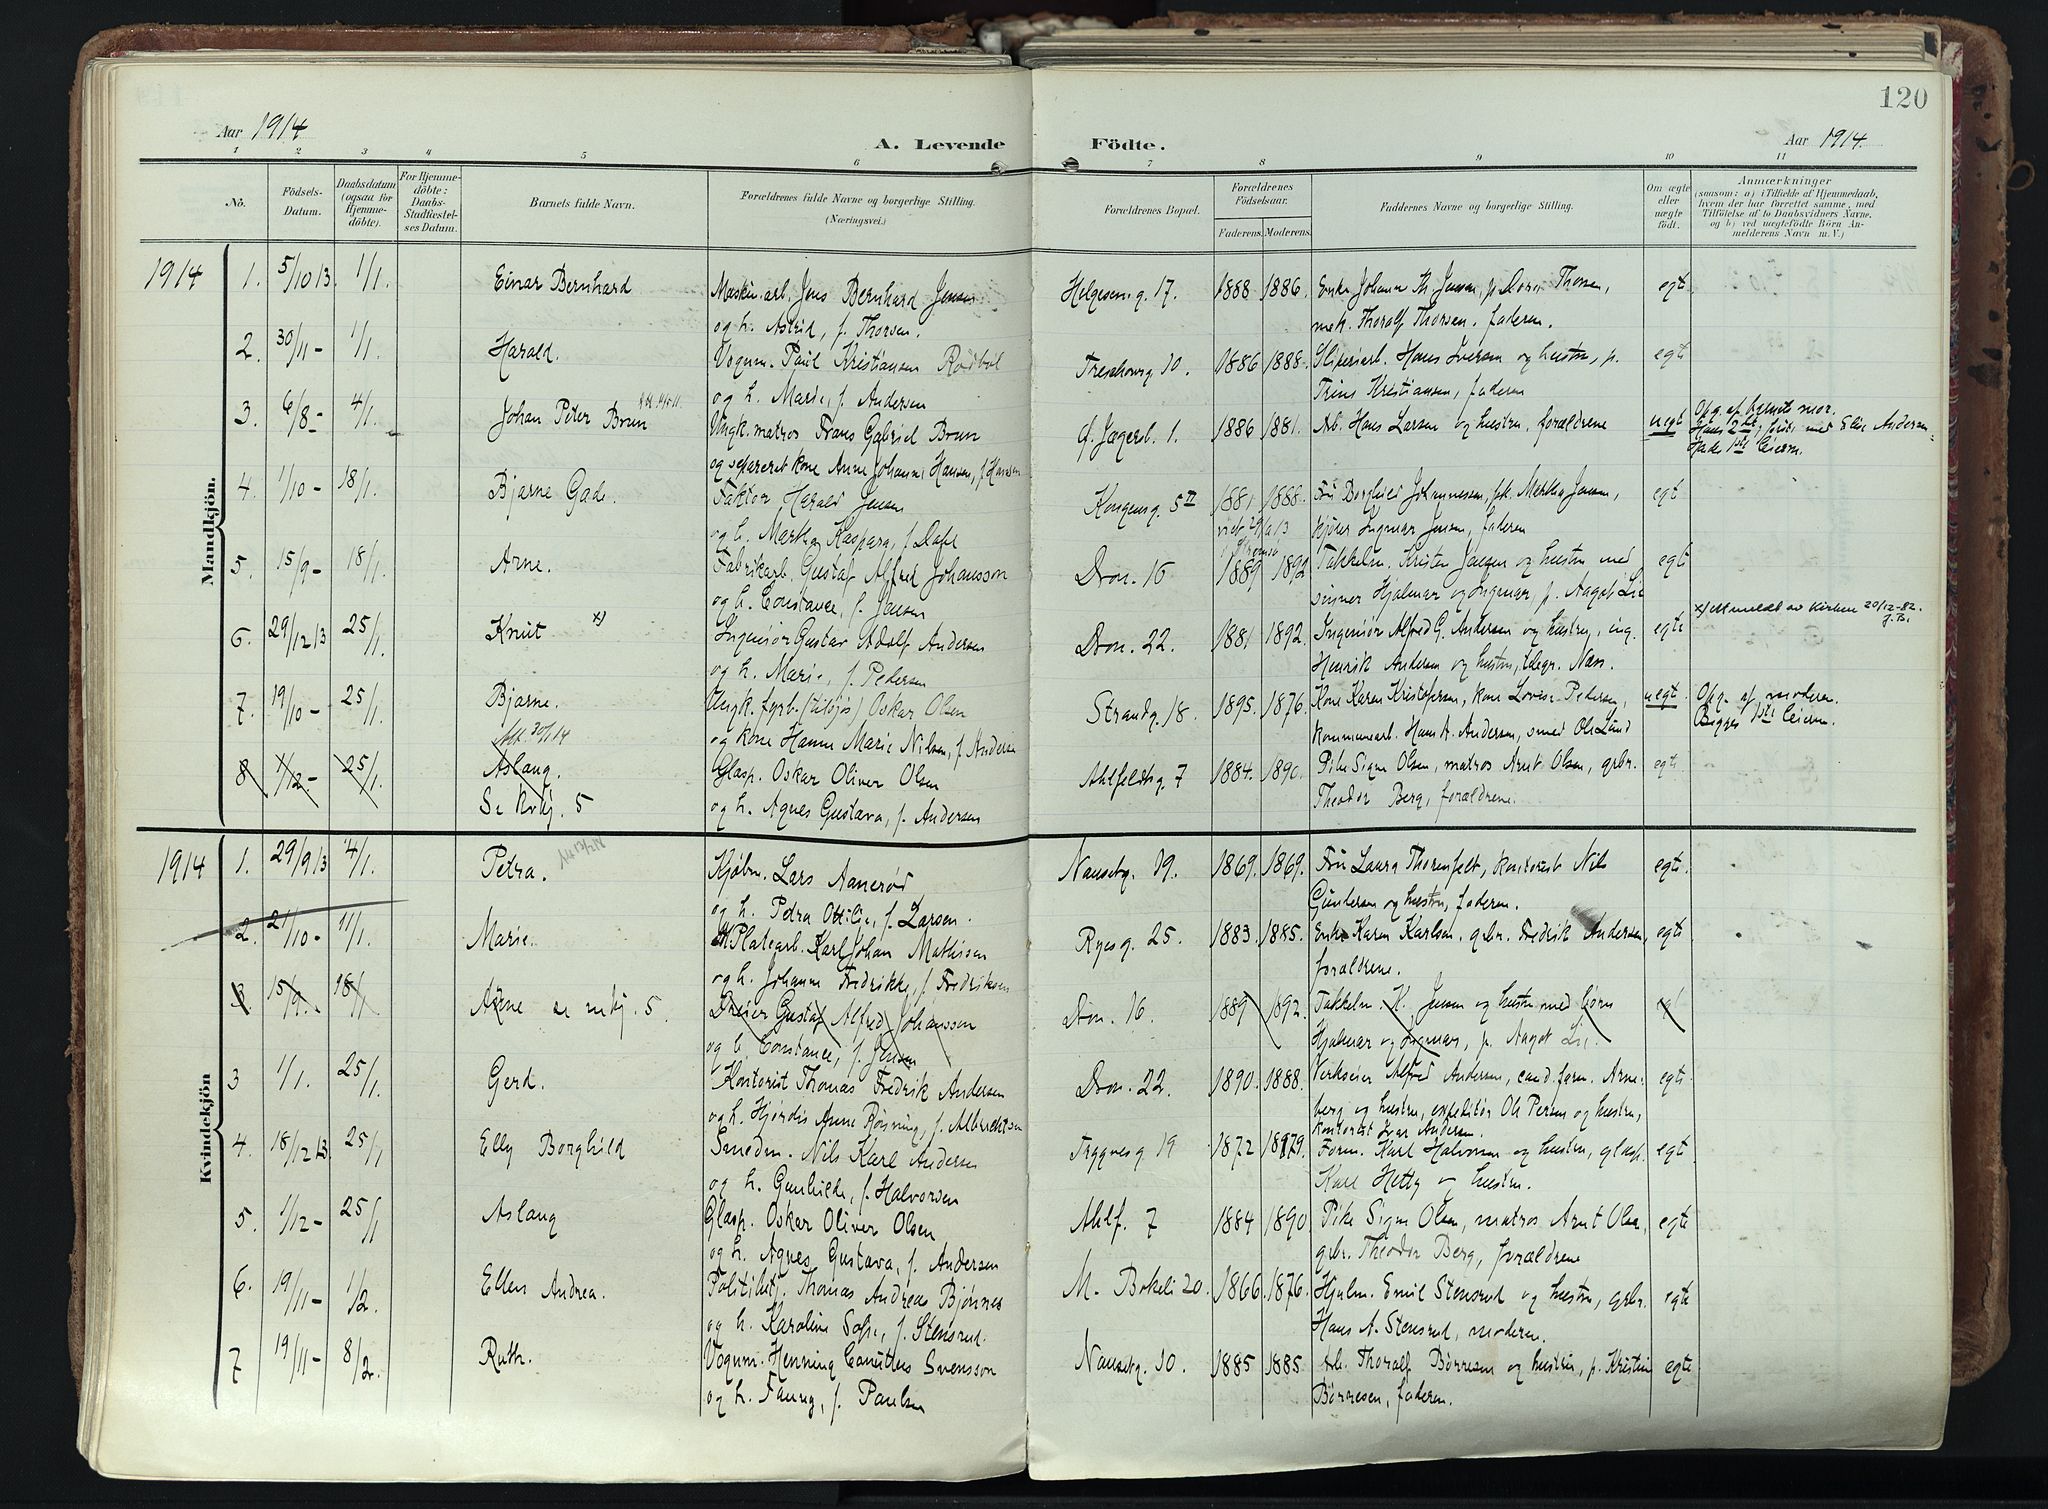 120
Aar 1914
A. Levende Födte.
Aar 1914.
1 2 3 4 5 6 7 8 9 10 11
No. Födsels-Datum. Daabsdatum (ogsaa for Hjemmedöbte). For Hjemmedöbte: Daabs-Stadfæstelses Datum. Barnets fulde Navn. Forældrenes fulde Navne og borgerlige Stilling. (Næringsvei.) Forældrenes Bopæl. Forældrenes Födselsaar. Faderens. Moderens. Faddernes Navne og borgerlige Stilling. Om ægte eller uægte födt. Anmærkninger (saasom: a) i Tilfælde af Hjemmedaab, hvem der har forrettet samme, med Tilföielse af to Daabsvidners Navne, og b) ved uægtefödte Börn Anmelderens Navn m. V.)
Mandkjön.
1914 1. 5/10 13. 1/1. Einar Bernhard Maskinarb. Jens Bernhard Jensen Helgesensg. 17. 1888 1886. Enke Johanne Th. Jensen, p. Thorsen, egt.
og h. Astrid, f. Thorsen. mek. Thoralf Thorsen. faderen.
2. 30/11 - 1/1. Harald. Vognm. Paul Kristiansen Rødbøl Treschowsg. 10. 1886 1888. Sliperiarb. Hans Iversen og hustru, p. egte
og h. Marie, f. Andersen Trine Kristiansen, faderen
3. 6/8 - 4/1. Johan Peter Brun Ungk. matros Frans Gabriel Brun f. Jægerb. 1. 1886 1881. Arb. Hans Larsen og hustru, forældrene uegt Opg. af barnets mor.
og separeret kone Anne Johanne Hansen, f. Hansen
4. 1/10 - 18/1. Bjarne Gade. Faktor Harald Jensen Kongensg. 5 II 1881 1888. Fru Borghild Johannessen, frk. Martha Jensen, egt
og h. Martha Kaspara, f. Dahl Ingmar Jensen, faderen
5. 15/9 - 18/1. Arne. Fabrikarb. Gustaf Alfred Johansson Dron. 16 1889 1892 Takkelm. Kristen Jensen og hustru med egt
og h. Constance, f. Jensen sønner Hjalmar og Ingmar, p. Aagot Lie
6. 29/12 13 25/1. Knut x) Ingeniør Gustav Adolf Andersen Dron. 22. 1881 1892. Ingeniør Alfred G. Andersen og hustru, ing. egte x) Utmeldt av kirken 20/12-82. J.B.
og h. Marie, f. Pedersen Henrik Andersen og hustru, telegr. Næss.
7. 19/10 - 25/1. Bjarne. Ungk. fyrb. (tilsjøs) Oskar Olsen Strandg. 18. 1895. 1876. Kone Karen Kristofersen, kone Lovise Pedersen, uegt. Opg. af moderen.
og kone Hanna Marie Nilsen, f. Andersen kommunearb. Hans A. Andersen, smed Ole Lund Begges 1ste leierm.
8 1/12 - 25/1. Aslaug. Glasp. Oskar Oliver Olsen Ahlfeldtsg. 7 1884. 1890. Pike Signe Olsen, matros Arnt Olsen, grbr. egte
Se kvkj. 5 og h. Agnes Gustava, f. Andersen Theodor Berg, forældrene.
Kvindekjön
1914 1. 29/9 13 4/1. Petra. Kjøbm. Lars Aanerød Nansetg. 19. 1869. 1869. Fru Laura Thorenfelt, kontorist Nils egte.
og h. Petra Ottilie, f. Larsen. Gundersen og hustru, faderen.
2. 21/10 - 11/1. Marie. Platearb. Karl Johan Mathisen Ryesg. 25. 1883. 1885. Enke Karen Karlsen, grbr. Fredrik Andersen, egte
og h. Johanne Fredrikke, f. Fredriksen forældrene.
3 15/9. 18/1 Arne se mkj. 5. Dreier Gustaf Alfred Johansson Dron. 16. 1889 1892. Takkelm. K. Jensen og hustru med børn egt
og h. Constance, f. Jensen Hjalmar og Ingmar, p. Aagot Lie.
3 1/1. 25/1 Gerd. Kontorist Thomas Fredrik Andersen Dron. 22. 1890. 1888. Verkseier Alfred Andersen, cand. farm. Arneberg egte
og h. Hjørdis Anne Røvning, f. Albrechtsen og hustru, expeditør Ole Persen og hustru,
kontorist Ivar Andersen.
4. 18/12 13 25/1 Elly Borghild Smedm. Nils Karl Andersen Trygvesg 19 1872 1879. Form. Karl Halvorsen og hustru, glasp. egte
og h. Gunhilde, f. Halvorsen Karl Hetty og hustru.
5. 1/12 - 25/1 Aslaug Glasp. Oskar Oliver Olsen Ahlf. 7 1884 1890 Pike Signe Olsen, matros Arnt Olsen, egte
og h. Agnes Gustava, f. Andersen grbr. Theodor Berg, forældrene
6. 19/11 - 1/2. Ellen Andrea. Politibetj. Thomas Andreas Bjønnes M. Bøkeli 20. 1866. 1876. Hjulm. Emil Stensrud og hustru, grbr. egte
og h. Karoline Sofie, f. Stensrud. Hans A. Stensrud, moderen.
7 19/11 - 8/2. Ruth. Vognm. Henning Canuttus Svensson Nansetg. 10. 1885 1885. Arb. Thoralf Børresen og hustru, p. Kristine egte
og h. Fanny, f. Paulsen Børresen, faderen.